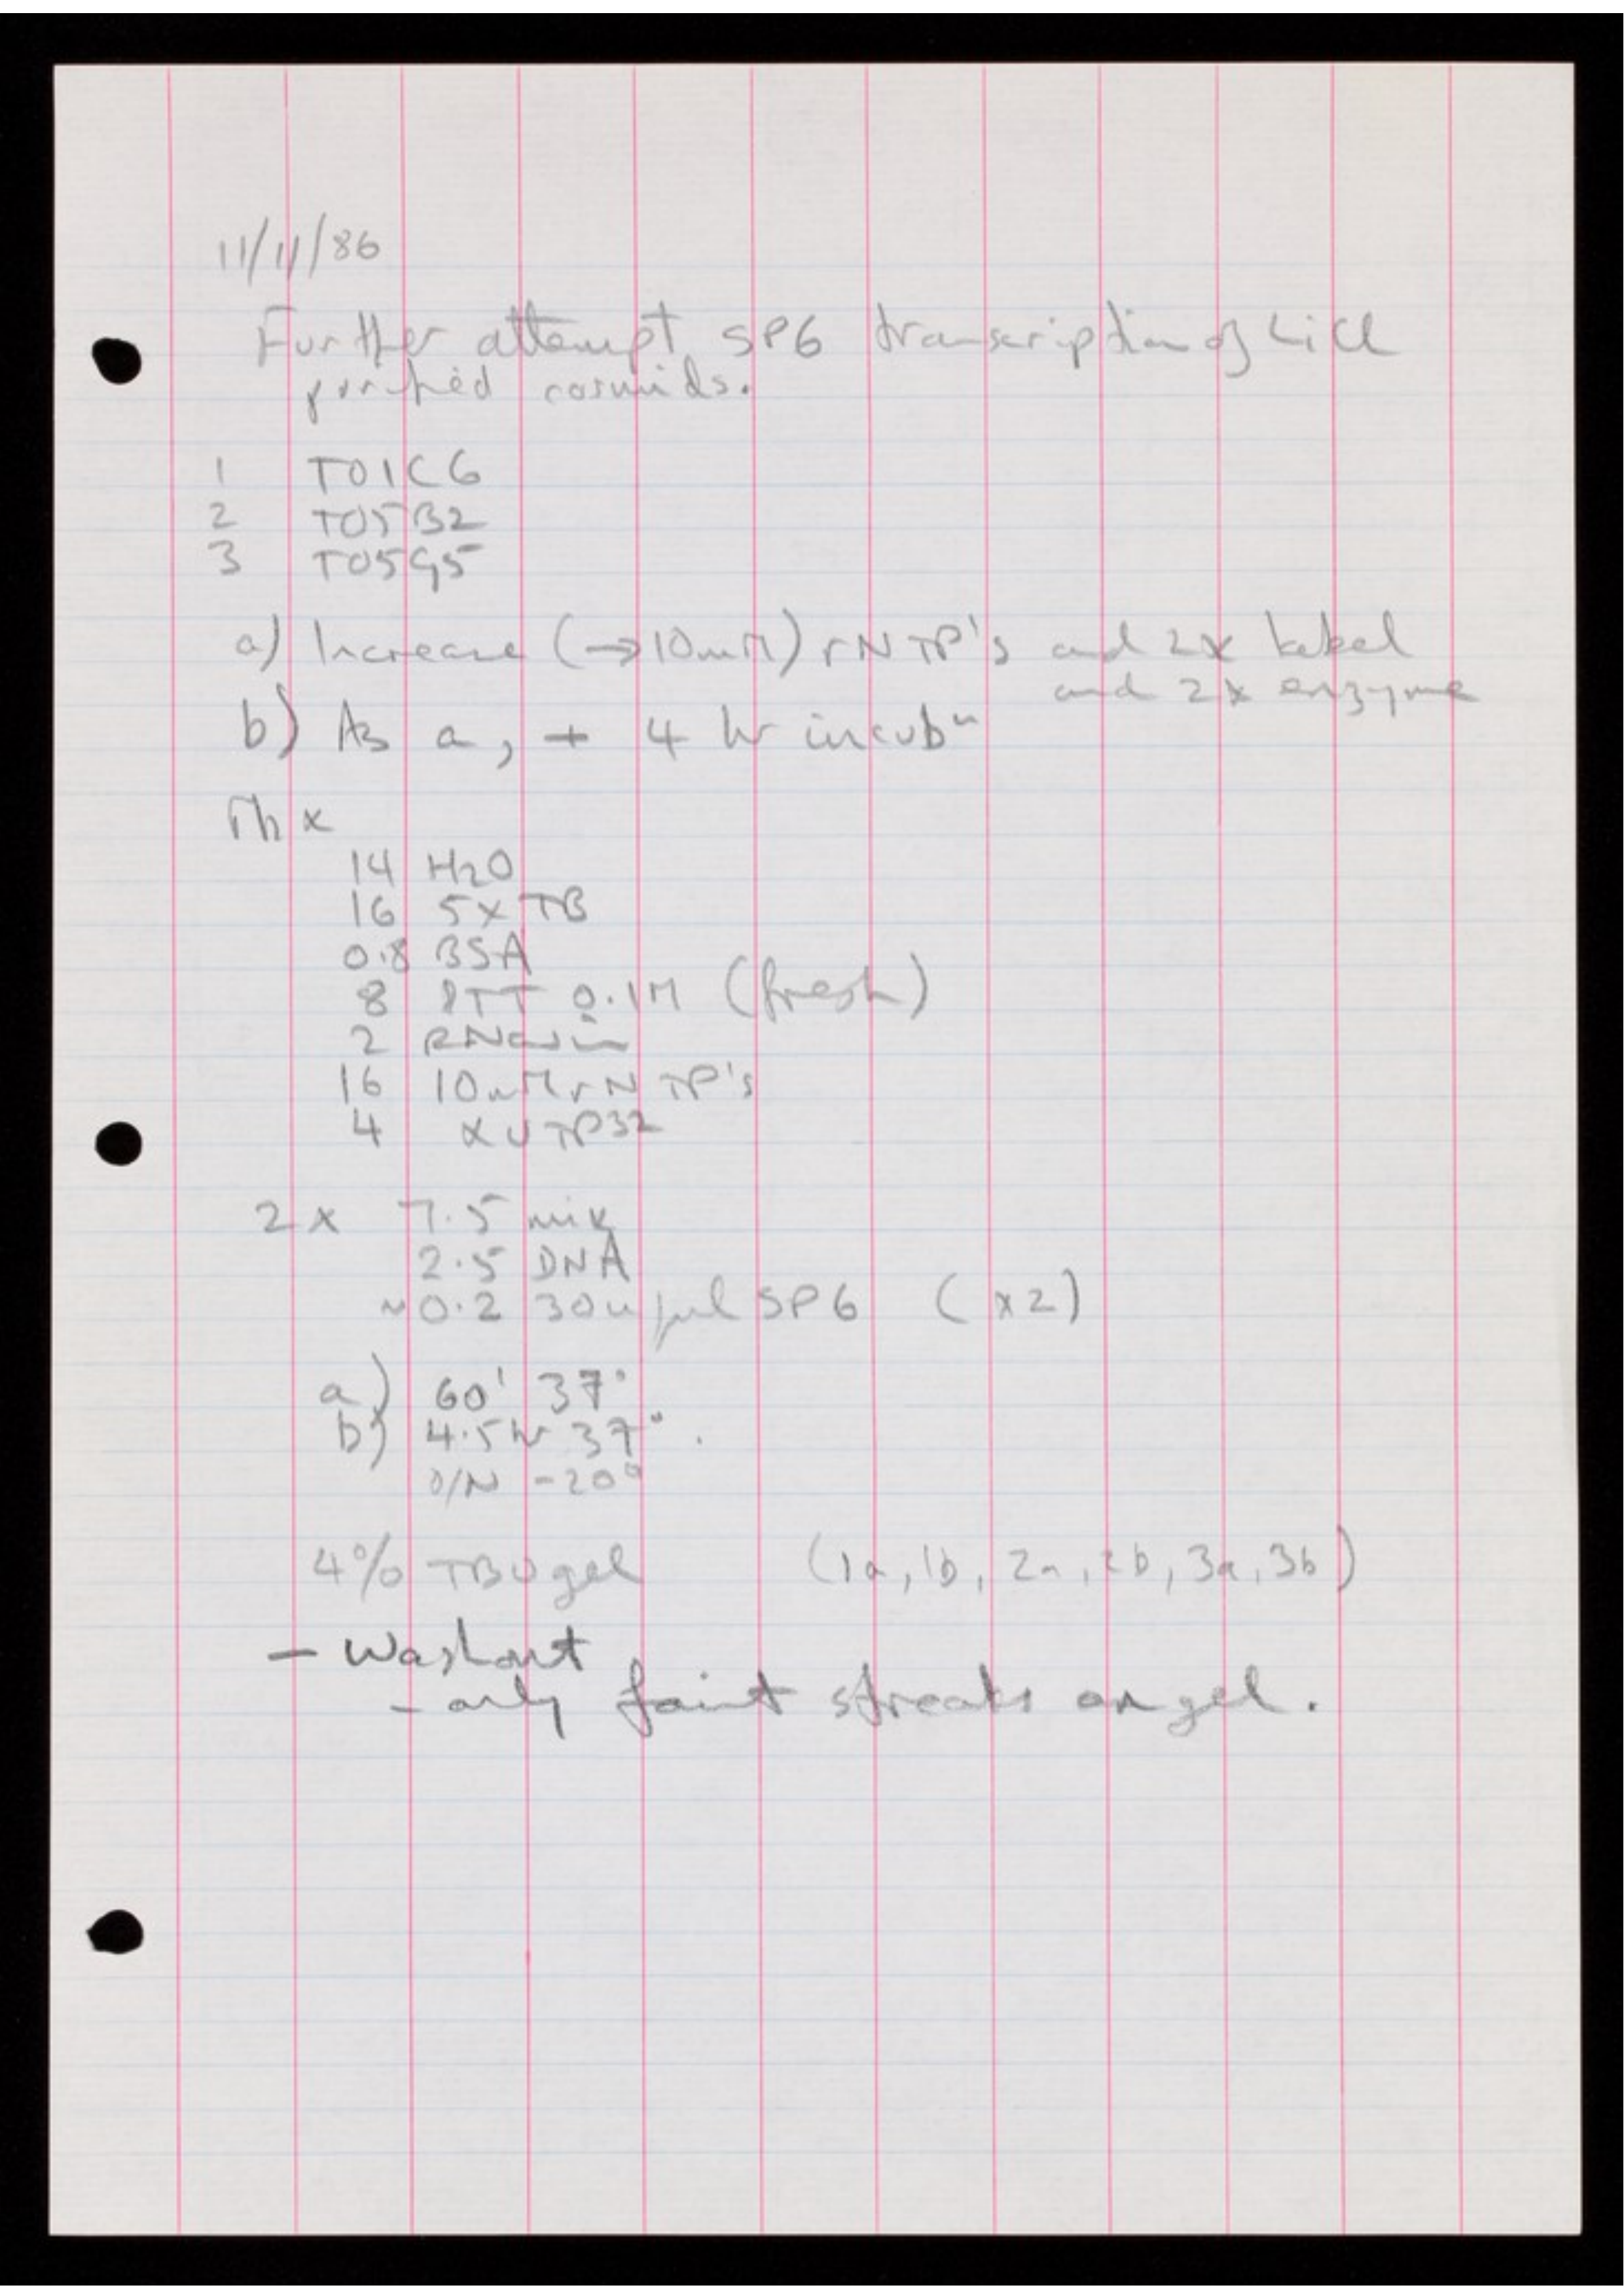 11/11/86
Further attempt SP6 transcription of LiCl
purified cosmids.
1 T01C6
2 T05B2
3 T05G5
a) Increase (→10mM) rNTP's and 2x label
and 2x enzyme
b) As a, + 4 hr incubⁿ
Mix
14 H2O
16 5x TB
0.8 BSA
8 DTT 0.1M (fresh)
2 RNasin
16 10mM rNTP's
4 αUTP32
2x 7.5 mix
2.5 DNA
~0.2 30u/μl SP6 (x2)
a) 60' 37°
b) 4.5 hr 37°.
O/N -20°
4% TBU gel (1a, 1b, 2a, 2b, 3a, 3b)
- Washout
- only faint streaks on gel.